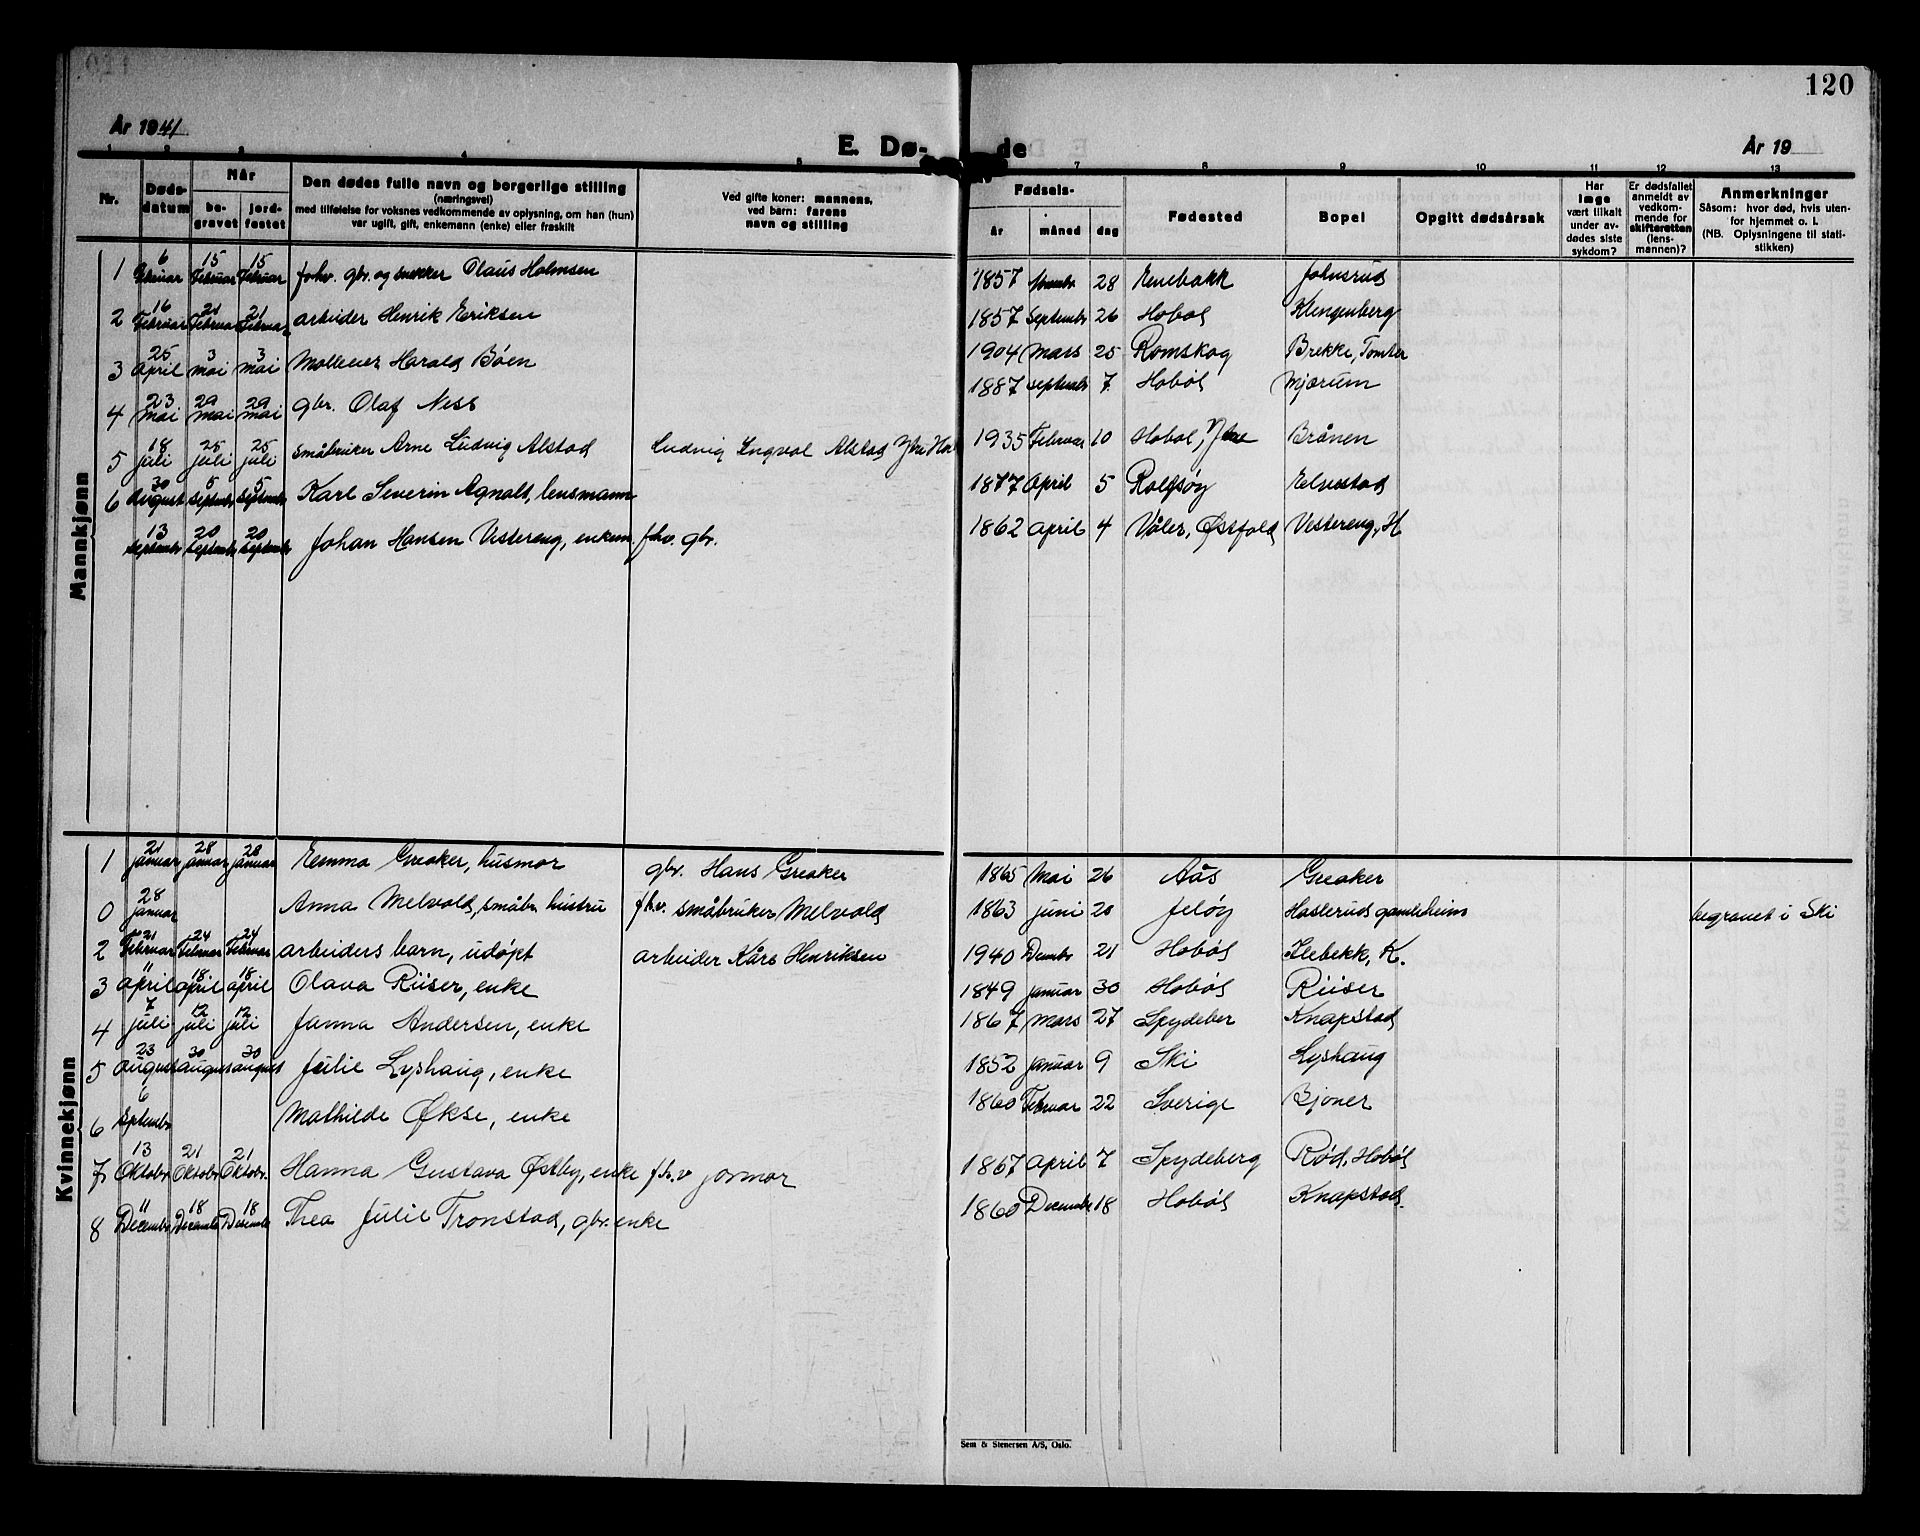 120
År 1941
E. Dø-
de
År 19
1 2 3 4 5 7 8 9 10 11 12 13
Nr.
Døds-
datum
Når
be-
gravet
jord-
festet
Den dødes fulle navn og borgerlige stilling
(næringsvei)
med tilføielse for voksnes vedkommende av oplysning, om han (hun)
var ugift, gift, enkemann (enke) eller fraskilt
Ved gifte koner: mannens,
ved barn: farens
navn og stilling
Fødsels-
år måned dag
Fødested
Bopel
Opgitt dødsårsak
Har
læge
vært tilkalt
under av-
dødes siste
sykdom?
Er dødsfallet
anmeldt av
vedkom-
mende for
skifteretten
(lens-
mannen)?
Anmerkninger
Såsom: hvor død, hvis uten-
for hjemmet o. l.
(NB. Oplysningene til stati-
stikken)
Mannkjønn
1 6 Februar 15 Februar 15 Februar forhv. gbr. og snekker Olaus Holmsen 1857 28 Enebakk Johnsrud
2 16 Februar 21 Februar 21 Februar arbeider Henrik Eriksen 1857 Septembr 26 Hobøl Klengenberg
3 25 April 3 mai 3 mai Møllever Harald Bøen 1904 Mars 25 Rømskog Brekke, Tomter
4 23 mai 29 mai 29 mai gbr. Olaf Ness 1887 Septembr 7 Hobøl Mjærum
5 18 juli 25 juli 25 juli småbruker Arne Ludvig Alstad Ludvig Ingval Alstad Ytre Hob 1935 Februar 10 Hobøl, Ytre Brånen
6 30 August 5 Septembr 5 Septembr Karl Severin Agnalt, lensmann 1877 April 5 Rolfsøy Elvestad
13 Septembr 20 Septembr 20 Septembr Johan Hansen Vestereng, enkem. fhv. gbr. 1862 April 4 Våler, Østfold Vestereng, H
Kvinnekjønn
1 21 januar 28 januar 28 januar Emma Greaker, husmor gbr. Hans Greaker 1865 Mai 26 Aas Greaker
0 28 januar Anna Melvold, småbr. hustru fhv. småbruker Melvold 1863 juni 20 Jeløy Haslerud gamleheim begravet i Ski
2 21 Februar 24 Februar 24 Februar arbeiders barn, udøpt arbeider Kåre Henriksen 1940 Dsembr 21 Hobøl Ilebekk, K.
3 11 April 18 april 18 april Olava Riiser, enke 1849 januar 30 Hobøl Riiser
4 7 juli 12 juli 12 juli Janna Andersen, enke 1867 mars 27 Spydeber Knapstad
5 23 August 30 august 30 august Julie Lyshaug, enke 1852 januar 9 Ski Lyshaug
6 6 Septembr Mathilde Økse, enke 1860 Februar 22 Sverige Bjoner
7 13 Oktobr 21 Oktobr 21 Oktobr. Hanna Gustava Østby, enke fh.v jormor 1867 April 7 Spydeberg Rød, Hobøl
8 11 Decembr 18 Decembr 18 Desembr Thea Julie Tronstad, gbr. enke 1860 Decembr 18 Hobøl Knapstad.
Sem & Stenersen A/S, Oslo.